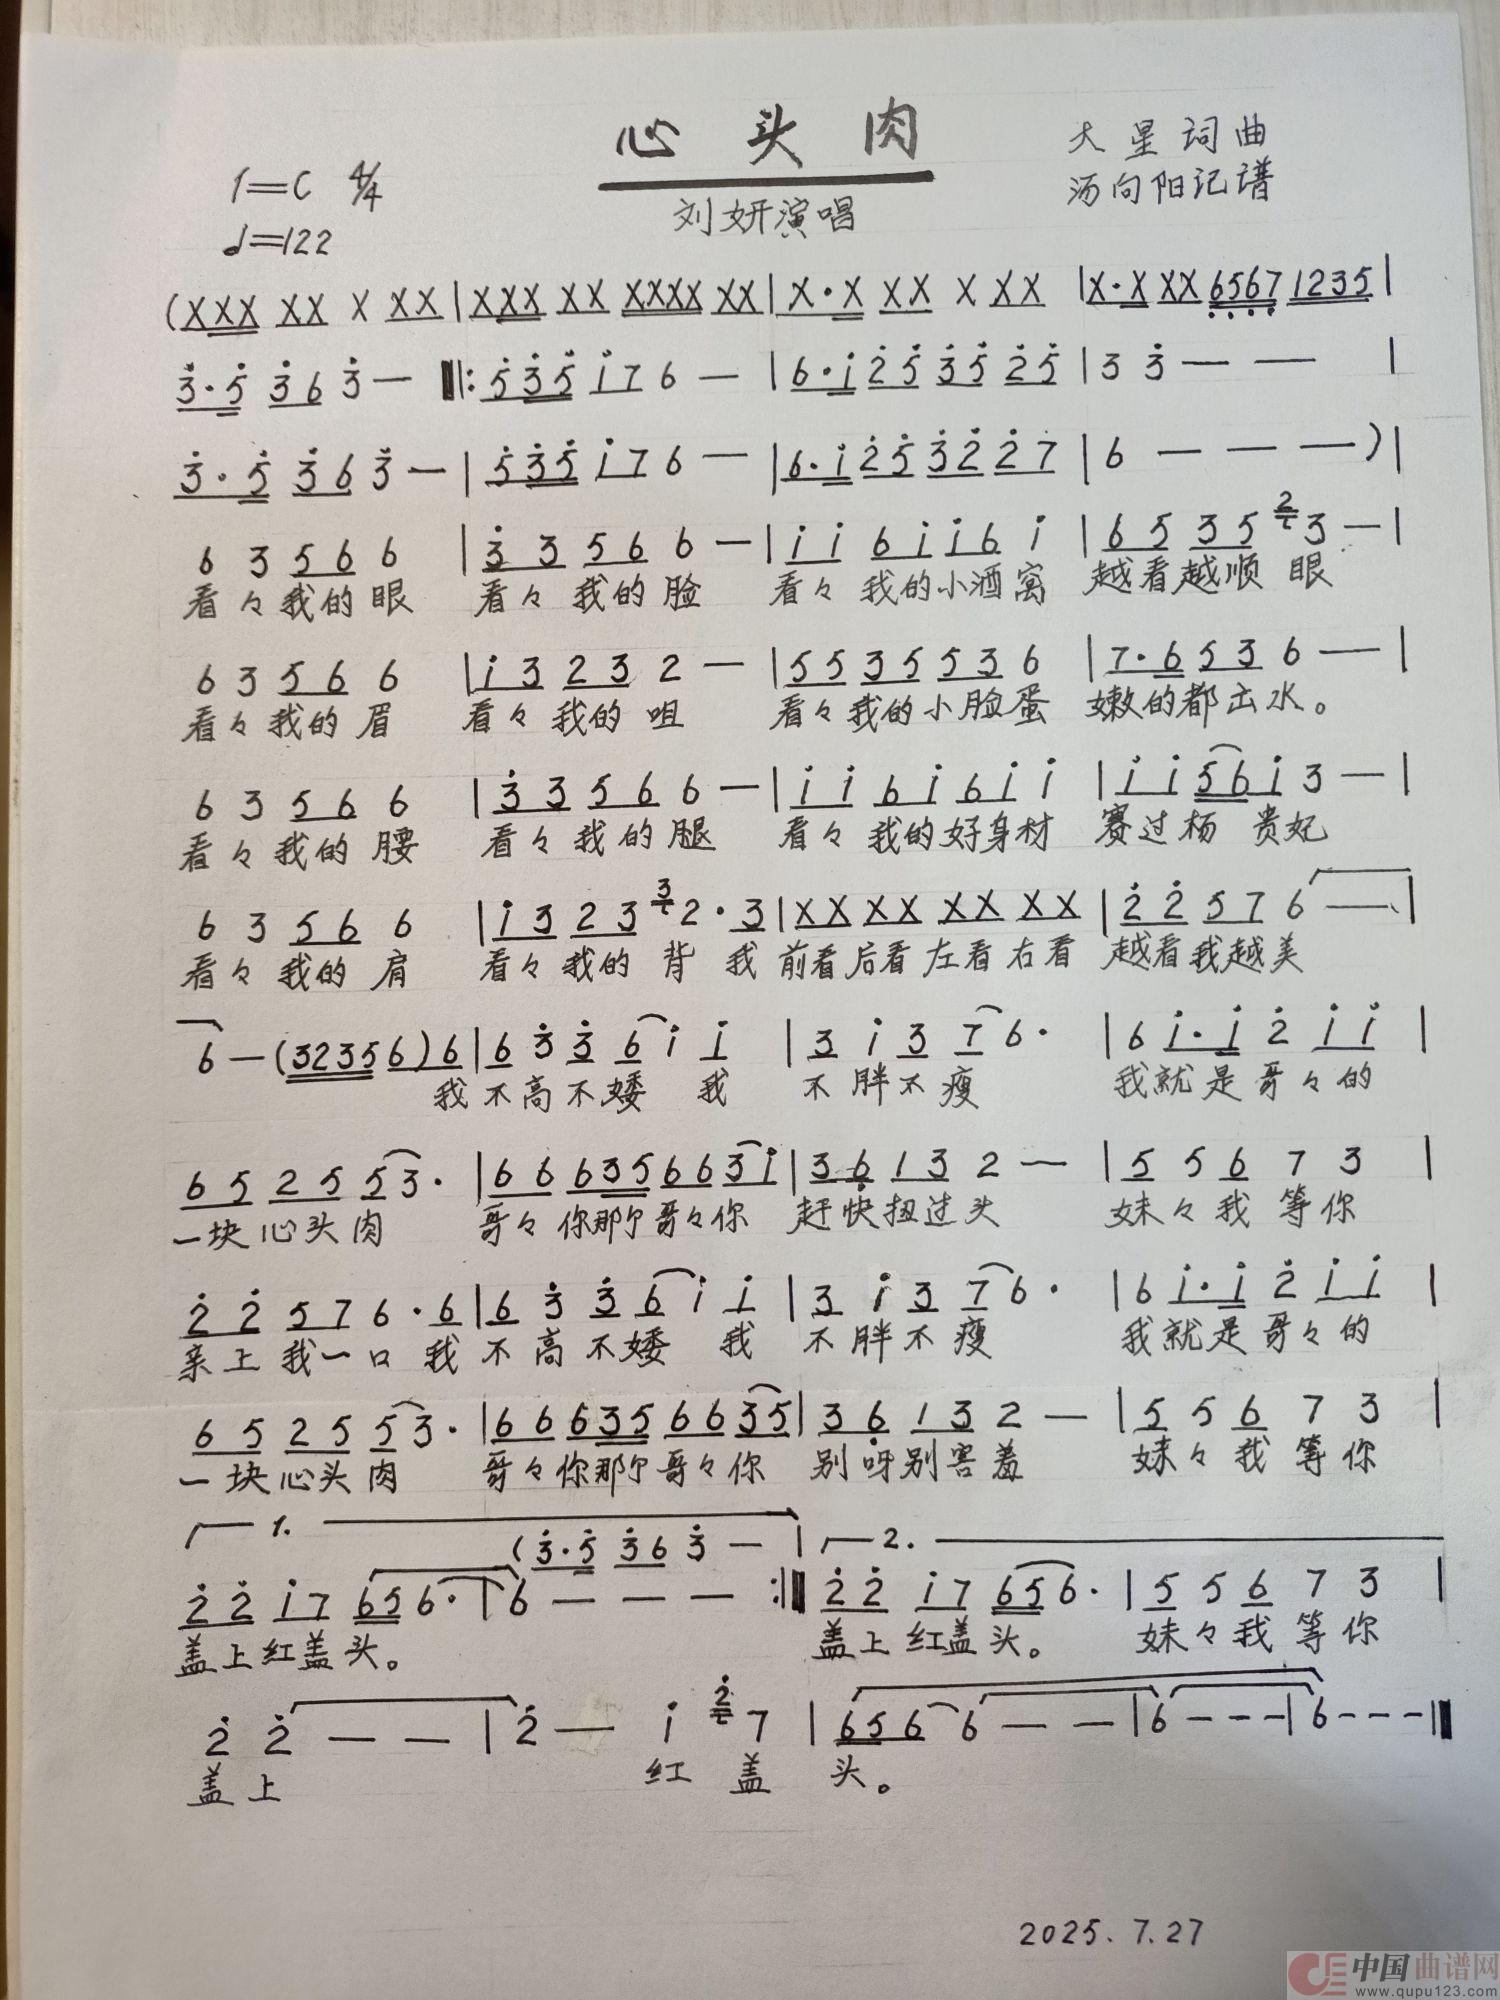 心头肉
大星词曲
1=C 4/4
汤向阳记谱
刘妍演唱
♩=122
(XXX XX X XX | XXX XX XXXX XX | X·X XX X XX | X·X XX 6567 1235 |
3·5 36 3 — ‖: 535 17 6 — | 6·1 25 35 25 | 3 3 — — |
3·5 36 3 — | 535 17 6 — | 6·1 25 32 27 | 6 — — — ) |
6 3 56 6 | 33 56 6 — | 11 61 16 1 | 65 35 2 3 — |
看々我的眼 看々我的脸 看々我的小酒窝 越看越顺眼
6 3 56 6 | 13 23 2 — | 55 35 53 6 | 7·6 53 6 — |
看々我的眉 看々我的咀 看々我的小脸蛋 嫩的都出水。
6 3 56 6 | 33 56 6 — | 11 61 61 1 | 11 561 3 — |
看々我的腰 看々我的腿 看々我的好身材 赛过杨贵妃
6 3 56 6 | 13 23 3 2·3 | XX XX XX XX | 22 57 6 — |
看々我的肩 看々我的背 我 前看后看左看右看 越看我越美
6 — (32356) 6 | 6 3 3 6 1 1 | 3 1 3 7 6· | 6 1·1 2 1 1 |
我 不高不矮 我 不胖不瘦 我就是哥々的
65 25 53· | 66 635 66 31 | 36 13 2 — | 5 5 6 7 3 |
一块心头肉 哥々你那个哥々你 赶快扭过头 妹々我等你
22 57 6·6 | 6 3 3 6 1 1 | 3 1 3 7 6· | 6 1·1 2 1 1 |
亲上我一口 我 不高不矮 我 不胖不瘦 我就是哥々的
65 25 53· | 66 635 66 35 | 36 13 2 — | 5 5 6 7 3 |
一块心头肉 哥々你那个哥々你 别呀别害羞 妹々我等你
1. 2.
(3·5 36 3 —
22 17 656· | 6 — — — :‖ 22 17 656· | 5 5 6 7 3 |
盖上红盖头。 盖上红盖头。 妹々我等你
2 2 — — | 2 — 1 2 7 | 656 6 — — | 6 - - - | 6 - - - ‖
盖上 红盖 头。
2025.7.27
中国曲谱网
www.qupu123.com